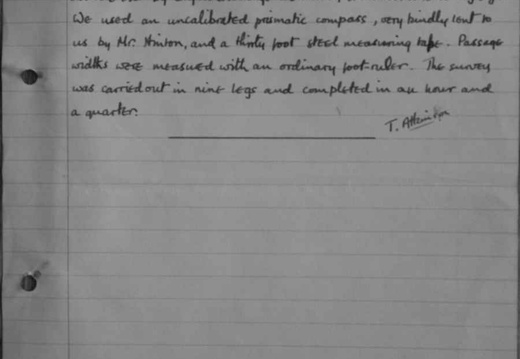 We used an uncalibrated prismatic compass, very kindly lent to
us by Mr. Hinton, and a thirty foot steel measuring tape. Passage
widths were measured with an ordinary foot-ruler. The survey
was carried out in nine legs and completed in an hour and
a quarter.
T. Atkinson